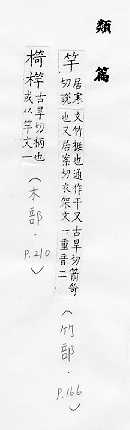 類篇
竿 居寒切說文竹梃也通作干又古旱切箭笴也又居案切衣架文一重音二
（竹部．P.166）
榦桿 古旱切柄也或以竿文一
（木部．P.210）